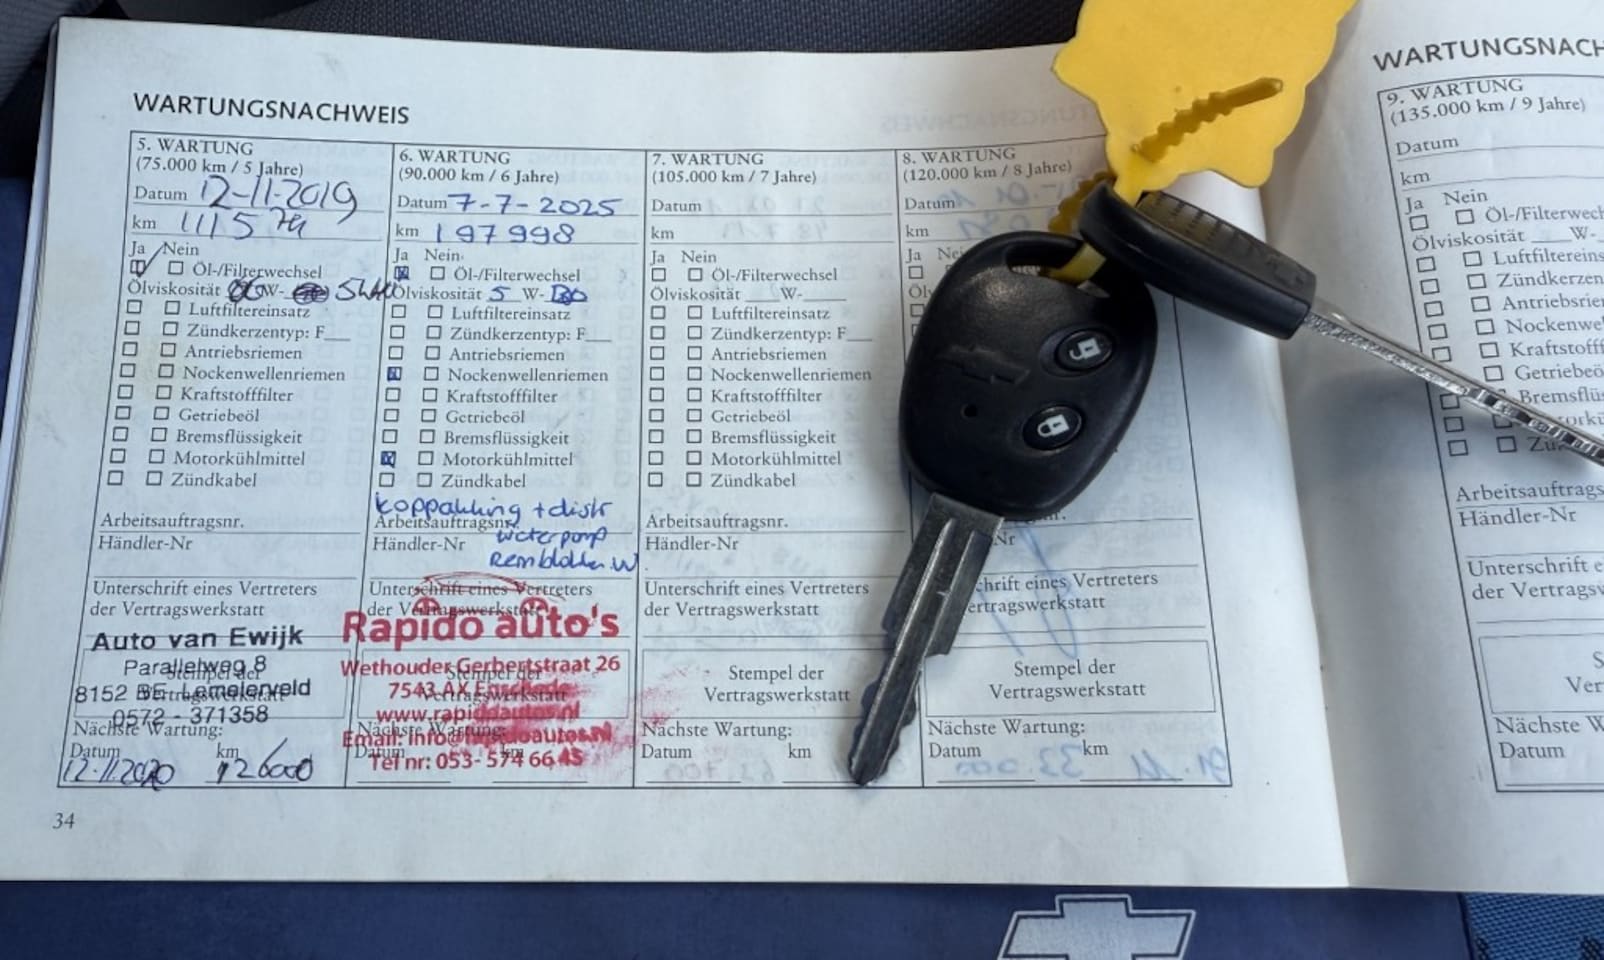 WARTUNGSNACHWEIS
5. WARTUNG
(75.000 km / 5 Jahre)
Datum 12-11-2019
km 111574
Ja Nein
Öl-/Filterwechsel
Ölviskosität W- 5W40
Luftfiltereinsatz
Zündkerzentyp: F___
Antriebsriemen
Nockenwellenriemen
Kraftstofffilter
Getriebeöl
Bremsflüssigkeit
Motorkühlmittel
Zündkabel
Arbeitsauftragsnr.
Händler-Nr
Unterschrift eines Vertreters
der Vertragswerkstatt
Auto van Ewijk
Parallelweg 8
8152 BE Lemelerveld
0572 - 371358
Nächste Wartung:
Datum km
12-11-2020 126000
6. WARTUNG
(90.000 km / 6 Jahre)
Datum 7-7-2025
km 197998
Ja Nein
Öl-/Filterwechsel
Ölviskosität 5 W-
Luftfiltereinsatz
Zündkerzentyp: F___
Antriebsriemen
Nockenwellenriemen
Kraftstofffilter
Getriebeöl
Bremsflüssigkeit
Motorkühlmittel
Zündkabel
koppakking + distr
Arbeitsauftragsnr.
waterpomp
Händler-Nr
Remblokken
Unterschrift eines Vertreters
der Vertragswerkstatt
Rapido auto's
Wethouder Gerbertstraat 26
Stempel der
7543 AX Enschede
Vertragswerkstatt
www.rapidoautos.nl
Nächste Wartung:
Email: info@rapidoautos.nl
Datum km
Tel nr: 053- 574 66 45
7. WARTUNG
(105.000 km / 7 Jahre)
Datum
km
Ja Nein
Öl-/Filterwechsel
Ölviskosität ___W-____
Luftfiltereinsatz
Zündkerzentyp: F___
Antriebsriemen
Nockenwellenriemen
Kraftstofffilter
Getriebeöl
Bremsflüssigkeit
Motorkühlmittel
Zündkabel
Arbeitsauftragsnr.
Händler-Nr
Unterschrift eines Vertreters
der Vertragswerkstatt
Stempel der
Vertragswerkstatt
Nächste Wartung:
Datum km
8. WARTUNG
(120.000 km / 8 Jahre)
Datum
km
Ja Ne
Öl
nr.
Nr
chrift eines Vertreters
ertragswerkstatt
Stempel der
Vertragswerkstatt
Nächste Wartung:
Datum km
34
WARTUNGSNACH
9. WARTUNG
(135.000 km / 9 Jahre)
Datum
km
Ja Nein
Öl-/Filterwech
Ölviskosität ___W-
Luftfiltereins
Zündkerzen
Antriebsrie
Nockenwe
Kraftstofff
Getriebeö
Bremsflüs
Arbeitsauftrags
Händler-Nr
Unterschrift e
der Vertragsw
S
Ver
Nächste War
Datum